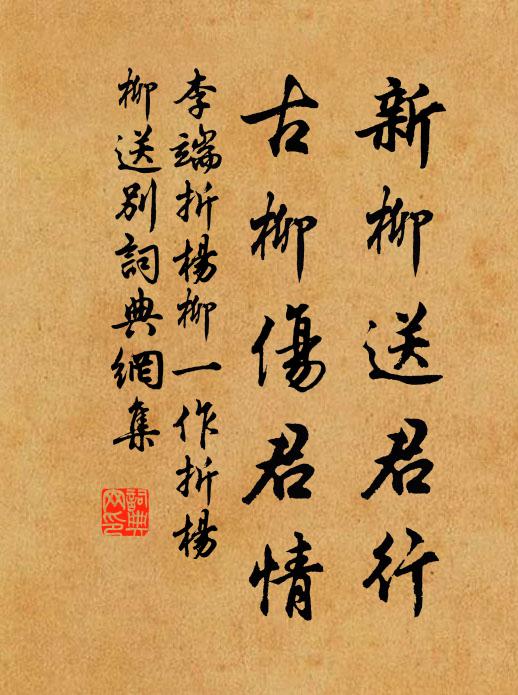 新柳送君行
古柳傷君情
李端折楊柳一作折楊
柳送別詞典網集
詞典
网印